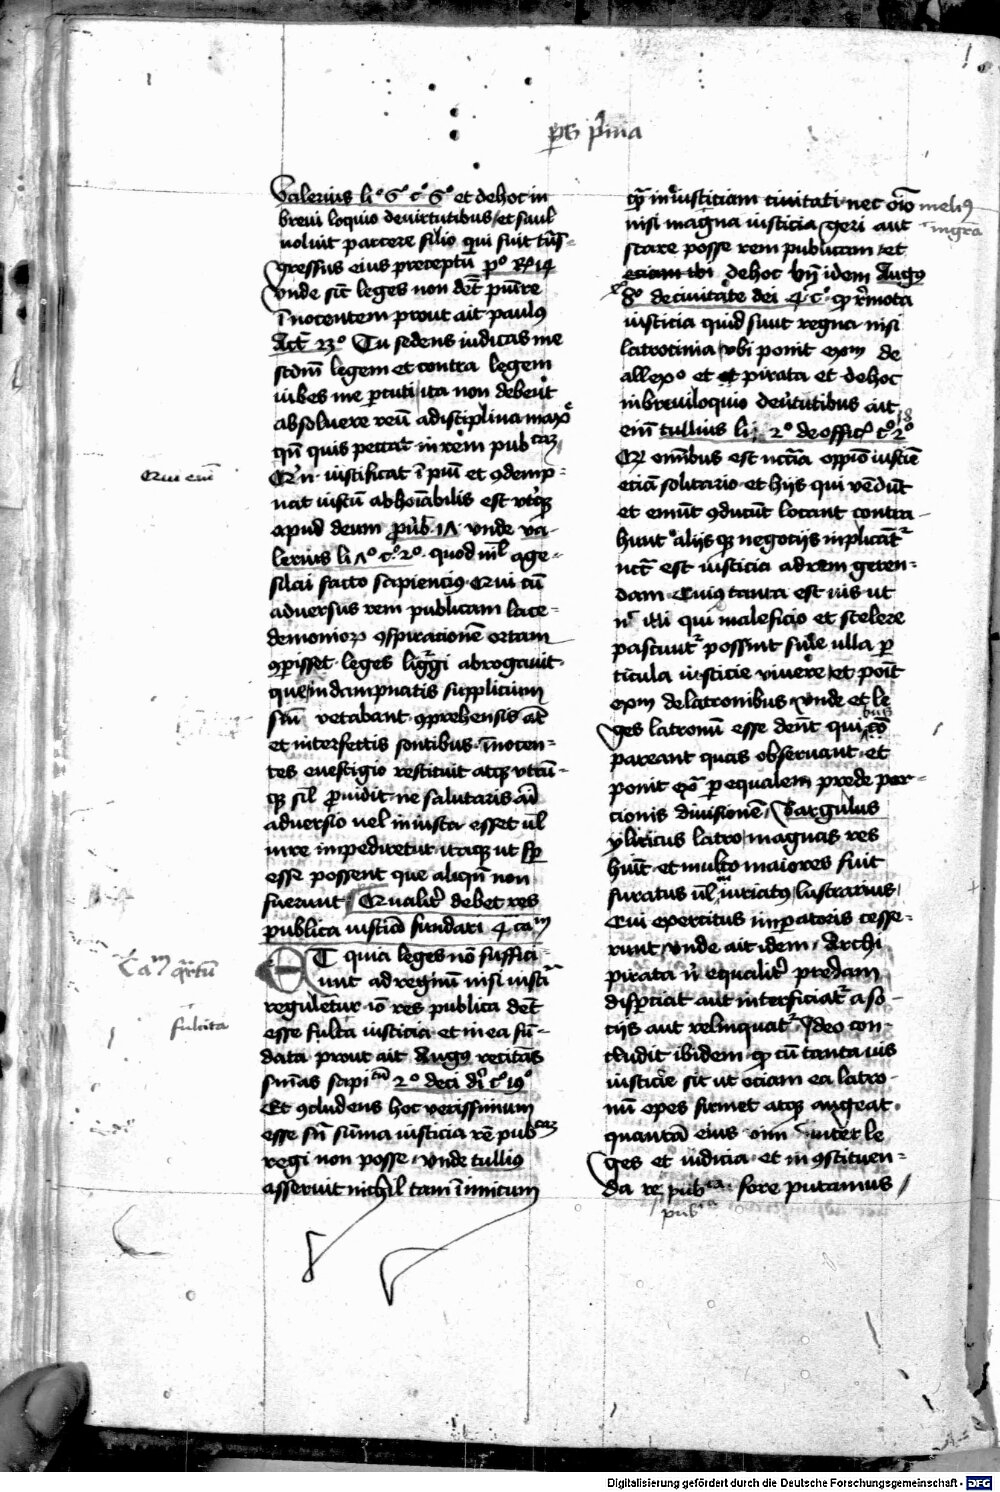 ps pma
Valerius li° 6° c° 6° et de hoc in
brevi loquio de virtutibus et saul
noluit parcere filio qui fuit tns
gressus eius preceptu p° R 14
Unde sic leges non det punire
inocentem prout ait paulus
Act 23° Tu sedens iudicas me
scdm legem et contra legem
iubes me percuti ita non debent
absolvere reu a disciplina maxe
qn quis peccat in rem pub cam
Qui iustificat impiu et 9demp
nat iustu abhoiabilis est uterq
apud deum prvb 17 unde va
lerius li 7° c° 2° quod ml age
silai facto sapiencius Qui cu
adversus rem publicam lace
demonior 9spiracione ortam
9perisset leges ligurgi abrogavit
que indampnatis supplicium
sui vetabant 9prehensis at
et interfectis sontibus inocen
tes evestigio restituit atq utru
q sil pvidit ne salutaris ai
adversio vel iniusta esset vl
iure impediretur itaq ut sp
esse possent que aliqn non
fuerunt Qualit debet res
publica iusticia fundari 4 cam
ET quia leges no suffici
unt ad regimen nisi iusti
regulentur io res publica det
esse fulta iusticia et in ea fu
data prout ait Augus recitas
snias scipi 2° de ci di c° 19°
Et 9cludens hoc verissimum
esse sn suma iusticia re pub cam
regi non posse unde tullius
asseruit nichil tam inimicum
Qui eni
Cam qrtu
fulcita
q iniusticiam civitati nec oio
melius
nisi magna iusticia geri aut
ingra
stare posse rem publicam et
eciam ibi de hoc idem Augus
de civitate dei 4 c° q remota
iusticia quid sunt regna nisi
latrocinia ubi ponit exm de
allexo et pirata et de hoc
in breviloquio de vtutibus ait
eni tullius li 2° de offic c° 2°
18
Qr omnibus est nccia oppio iusticie
etia solitario et hijs qui vedut
et emut 9ducut locant contra
hunt alijs q negocijs implicat
ncc est iusticia ad rem geren
dam Cuius tanta est vis ut
illi qui maleficio et scelere
pascunt possint sine ulla p
ticula iusticie vivere et poit
exm de latronibus unde et le
ges latronu esse dent quibus
pareant quas observant et
ponit exm per equalem prede por
cionis divisione Bargulus
yliricus latro magnas res
huit et multo maiores fuit
furatus vl viriatus lustranus
Cui exercitus imperatoris cesse
runt unde ait idem Archi
pirata ni equalit predam
disperciat aut interficiat a so
ciis aut relinquat Ideo con
cludit ibidem q cu tanta vis
iusticie sit ut eciam ea latro
nu opes firmet atq augeat
quanta eius vim inter le
ges et iudicia et in 9stituen
da re pub ca fore putamus
pub ca
Digitalisierung gefördert durch die Deutsche Forschungsgemeinschaft - DFG